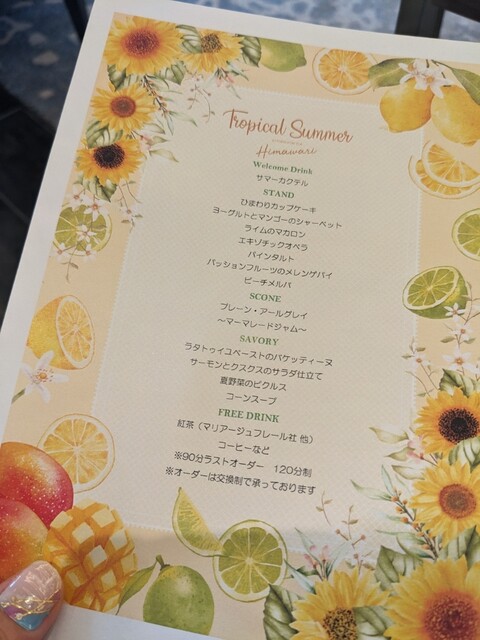 Tropical Summer
Himawari
Welcome Drink
サマーカクテル
STAND
ひまわりカップケーキ
ヨーグルトとマンゴーのシャーベット
ライムのマカロン
エキゾチックオペラ
パインタルト
パッションフルーツのメレンゲパイ
ピーチメルバ
SCONE
プレーン・アールグレイ
～マーマレードジャム～
SAVORY
ラタトゥイユペーストのバゲッティーヌ
サーモンとクスクスのサラダ仕立て
夏野菜のピクルス
コーンスープ
FREE DRINK
紅茶（マリアージュフレール社 他）
コーヒーなど
※90分ラストオーダー 120分制
※オーダーは交換制で承っております